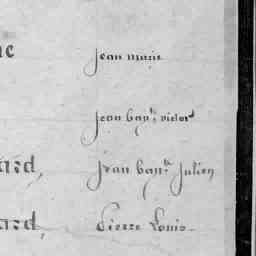 ne jean marie
jean bap.te victor
ard, jean bap.te Julien
ard, Pierre Louis.